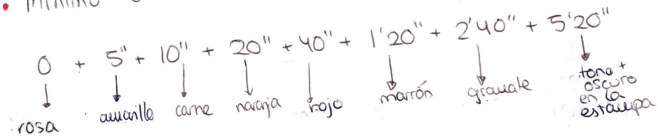 0 + 5" + 10" + 20" + 40" + 1'20" + 2'40" + 5'20"
rosa amarillo carne naranja rojo marrón granate tono + oscuro en la estampa